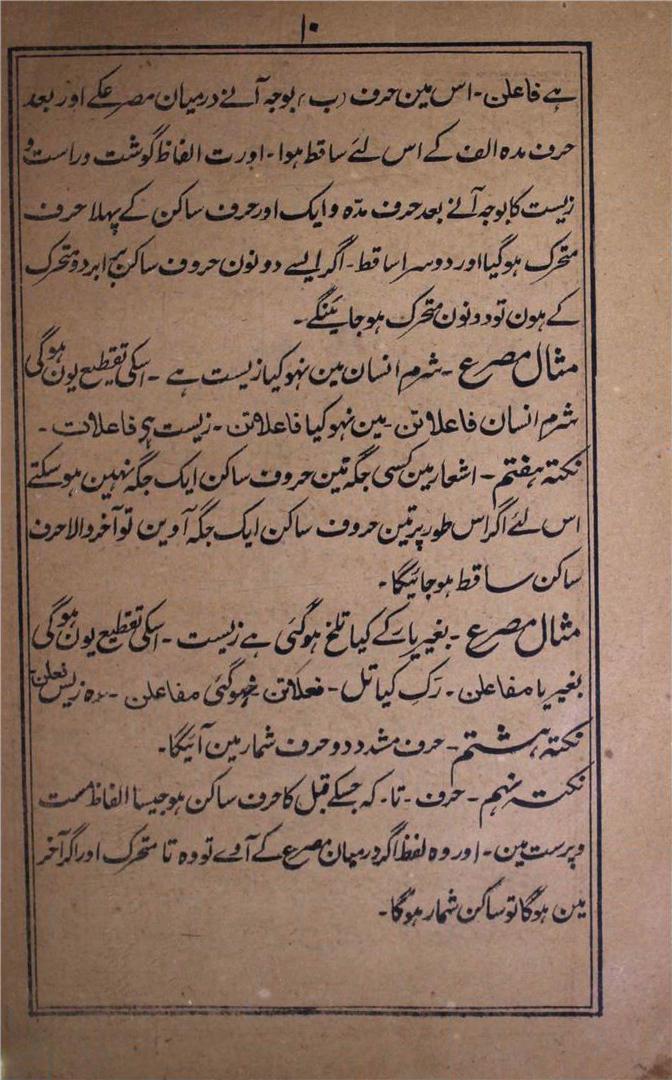 ۱۰
ہے فاعلن۔ اس مین حرف (ب) بوجہ آنے درمیان مصرعکے اور بعد
حرف مدہ الف کے اس لئے ساقط ہوا۔ اور ت الفاظ گوشت و راست و
زیست کا بوجہ آنے بعد حرف مدّہ و ایک اور حرف ساکن کے پہلا حرف
متحرک ہو گیا اور دوسرا ساقط۔ اگر ایسے دونون حروف ساکن بجا بر دہ متحرک
کے ہون تو دونون متحرک ہو جایئنگے۔
مثال مصرع۔ شرم انسان مین نہو کیا زیست ہے۔ اسکی تقطیع یون ہوگی
شرمِ انسان فاعلاتن۔ مین نہو کیا فاعلاتن۔ زیست ہی فاعلات۔
نکتہ ہفتم۔ اشعار مین کسی جگہ تین حروف ساکن ایک جگہ نہین ہو سکتے
اس لئے اگر اس طور پر تین حروف ساکن ایک جگہ آوین تو آخر والا حرف
ساکن ساقط ہو جائیگا۔
مثال مصرع۔ بغیر یار کے کیا تلخ ہو گئی ہے زیست۔ اسکی تقطیع یون ہوگی
بغیر یا مفاعلن۔ رَکِ کیا تل۔ فعلاتن خہو گئی مفاعلن۔ زیس فعلن
نکتہ ہشتم۔ حرف مشدد دو حرف شمار مین آئیگا۔
نکتہ نہم۔ حرف۔ تا۔ کہ جسکے قبل کا حرف ساکن ہو جیسا الفاظ مست
و پرست مین۔ اور وہ لفظ اگر درمیان مصرع کے آوے تو وہ تا متحرک اور اگر آخر
مین ہوگا تو ساکن شمار ہوگا۔